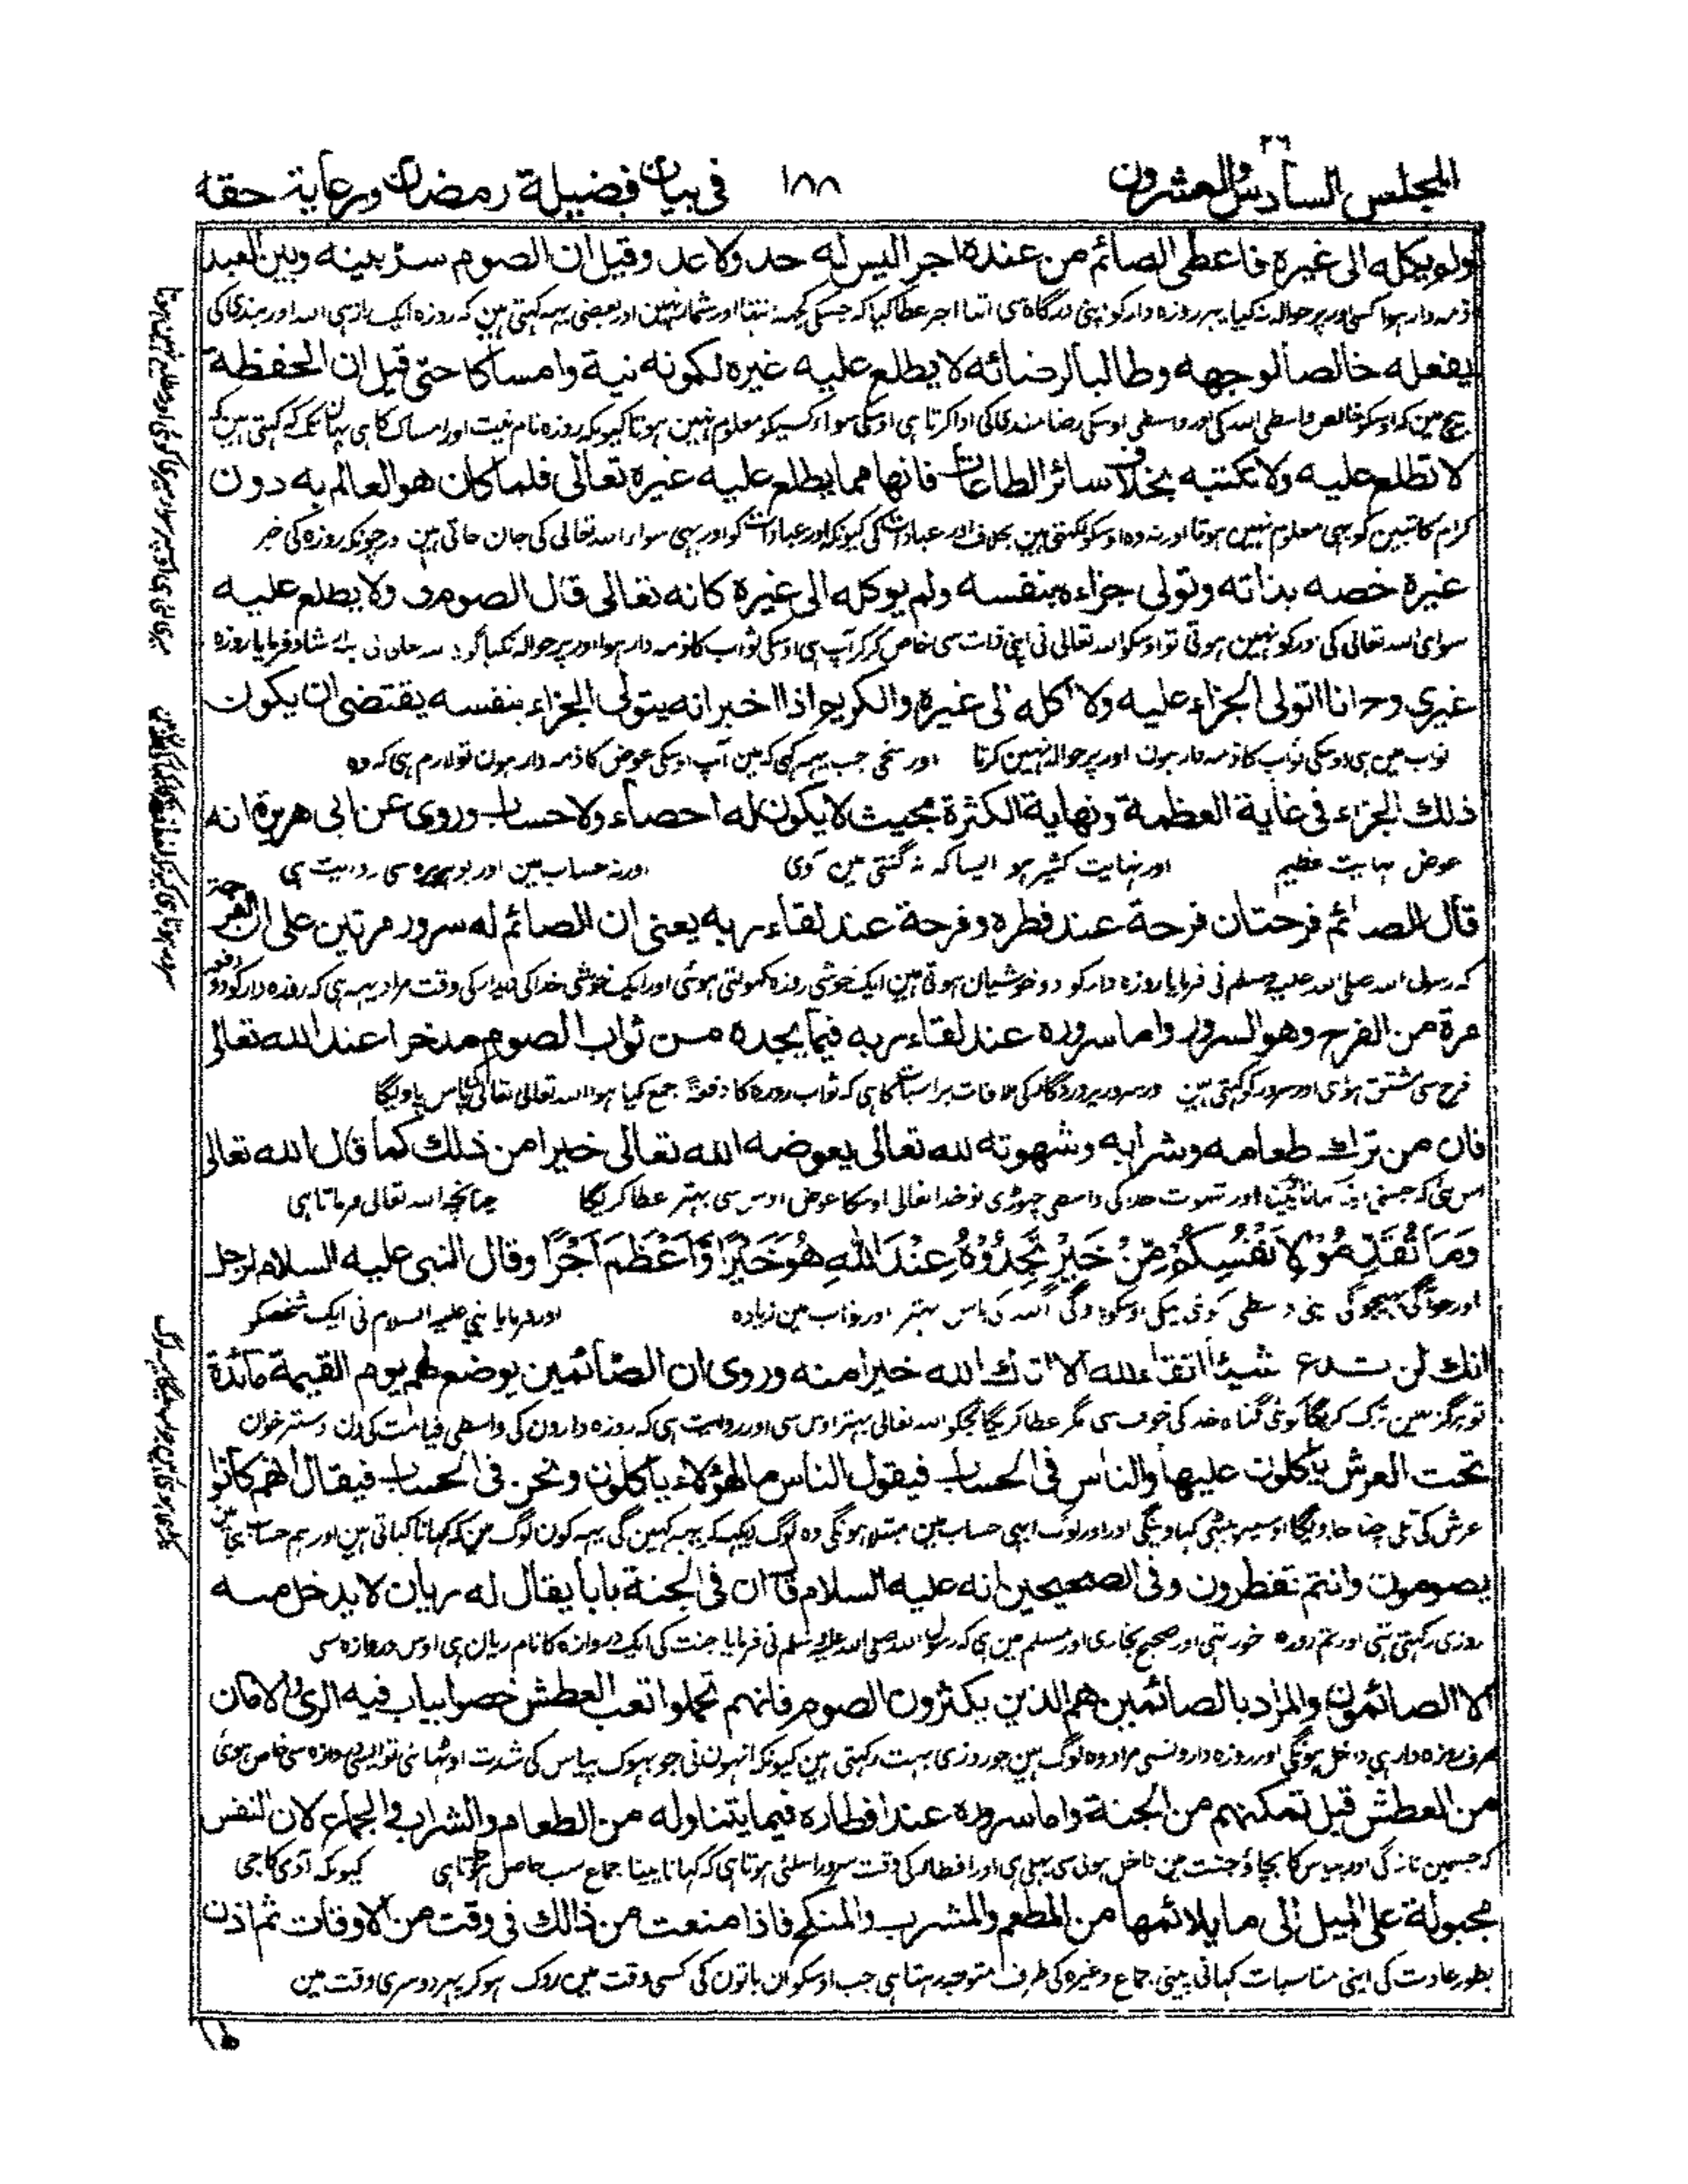 ٢٦
المجلس السادس والعشرون ١٨٨ فى بيان فضيلة رمضان ورعاية حقه
ولم يوكله الى غيره فاعطى الصائم من عنده اجرا ليس له حد ولا عد وقيل ان الصوم سر بينه وبين العبد
ذمه دار ہوا کسی اور پر حوالہ نہ کیا پہر روزہ دار کو اپنی درگاہ سی اتنا اجر عطا کیا کہ جسکی کچہہ انتہا اور شمار نہین اور بعضی یہہ کہتی ہین کہ روزہ ایک راز ہی اللہ اور بندی کی
يفعله خالصا لوجهه وطالبا لرضائه لا يطلع عليه غيره لكونه نية وامساكا حتى قيل ان الحفظة
بیچ مین کہ اوسکو خالص واسطی اللہ کی اور واسطی اوسکی رضامندی کی ادا کرتا ہی اوسکی سوا اور کسیکو معلوم نہین ہوتا کیونکہ روزہ نام نیت اور امساک کا ہی یہان تک کہ کہتی ہین کہ
لا تطلع عليه ولا تكتبه بخلاف سائر الطاعات فانها مما يطلع عليه غيره تعالى فلما كان هو العالم به دون
کرام کاتبین کو بہی معلوم نہین ہوتا اور نہ وہ اوسکو لکہتی ہین بخلاف اور عبادات کی کیونکہ اور عبادات کو اور بہی سوا اللہ تعالی کی جان جاتی ہین اور چونکہ روزہ کی خبر
غيره خصه بذاته وتولى جزاءه بنفسه ولم يوكله الى غيره كانه تعالى قال الصوم لى ولا يطلع عليه
سوای اللہ تعالی کی اور کو نہین ہوتی تو اوسکو اللہ تعالی نی اپنی ذات سی خاص کر کر آپ ہی اوسکی ثواب کا ذمہ دار ہوا اور پر حوالہ نکیا گویا اللہ تعالی نی ارشاد فرمایا روزہ
غيرى وانا اتولى الجزاء عليه ولا اكله الى غيره والكريم اذا اخبر انه يتولى الجزاء بنفسه يقتضى ان يكون
ثواب مین ہی اوسکی ثواب کا ذمہ دار ہون اور پر حوالہ نہین کرتا اور سخی جب یہہ کہی کہ مین آپ اوسکی عوض کا ذمہ دار ہون تو لازم ہی کہ وہ
ذلك الجزاء فى غاية العظمة ونهاية الكثرة بحيث لا يكون له احصاء ولا حساب وروى عن ابى هريرة انه
عوض نہایت عظیم اور نہایت کثیر ہو ایسا کہ نہ گنتی مین آوی اور نہ حساب مین اور ابو ہریرہ سی روایت ہی
قال للصائم فرحتان فرحة عند فطره وفرحة عند لقاء ربه يعنى ان الصائم له سرور مرتين على ان الفرحة
کہ رسول اللہ صلی اللہ علیہ وسلم نی فرمایا روزہ دار کو دو خوشیان ہوتی ہین ایک خوشی روزہ کہولتی ہوئی اور ایک خوشی خدا کی دیدار کی وقت مراد یہہ ہی کہ روزہ دار کو دو دفعہ
مرة من الفرح وهو السرور واما سروره عند لقاء ربه فيما يجده من ثواب الصوم مدخرا عند الله تعالى
فرح سی مشتق ہوئی اور سرور کو کہتی ہین اور سرور پروردگار کی ملاقات پر اس بات کا ہی کہ ثواب روزہ کا دفعۃ جمع کیا ہوا اللہ تعالی کی پاس پاویگا
فان من ترك طعامه وشرابه وشهوته لله تعالى يعوضه الله تعالى خيرا من ذلك كما قال الله تعالى
اس لئی کہ جسنی اپنا کہانا پینا اور شہوت خدا کی واسطی چہوڑی تو خدا تعالی اوسکا عوض اوس سی بہتر عطا کریگا چنانچہ اللہ تعالی فرماتا ہی
وَمَا تُقَدِّمُوْا لِاَنْفُسِكُمْ مِّنْ خَيْرٍ تَجِدُوْهُ عِنْدَ اللهِ هُوَ خَيْرًا وَّاَعْظَمَ اَجْرًا وقال النبى عليه السلام لرجل
اور جو آگی بہیجو گی اپنی واسطی کوئی نیکی اوسکو پاؤگی اللہ کی پاس بہتر اور ثواب مین زیادہ اور فرمایا نبی علیہ السلام نی ایک شخصکو
انك لن تدع شيئا اتقاء لله الا اتاك الله خيرا منه وروى ان الصائمين يوضع لهم يوم القيمة مائدة
تو ہرگز نہین ترک کریگا کوئی گناہ خدا کی خوف سی مگر عطا کریگا تجکو اللہ تعالی بہتر اوس سی اور روایت ہی کہ روزہ دارون کی واسطی قیامت کی دن دسترخوان
تحت العرش ياكلون عليها والناس فى الحساب فيقول الناس ما لهؤلاء ياكلون ونحن فى الحساب فيقال انهم كانوا
عرش کی تلی چنا جاویگا اوسپر بیٹہی کہاوینگی اور اور لوگ ابہی حساب مین مبتلا ہونگی وہ لوگ دیکہہ کر یہہ کہین گی یہہ کون لوگ ہین کہ کہانا کہاتی ہین اور ہم حساب مین
يصومون وانتم تفطرون وفى الصحيحين انه عليه السلام قال ان فى الجنة بابا يقال له ريان لا يدخل منه
روزی رکہتی تہی اور تم روزہ خور تہی اور صحیح بخاری اور مسلم مین ہی کہ رسول اللہ صلی اللہ علیہ وسلم نی فرمایا جنت کی ایک دروازہ کا نام ریان ہی اوس دروازہ سی
الا الصائمون والمراد بالصائمين هم الذين يكثرون الصوم فانهم تحملوا تعب العطش خصوا بباب فيه الرى والامان
صرف روزہ دار ہی داخل ہونگی اور روزہ دارونسی مراد وہ لوگ ہین جو روزی بہت رکہتی ہین کیونکہ انہون نی جو بہوک پیاس کی شدت اوٹہائی تو ایسی دروازہ سی خاص ہوئ
من العطش قبل تمكنهم من الجنة واما سروره عند افطاره فيما يتناوله من الطعام والشراب والجماع لان النفس
کہ جسمین تازگی اور پیاس کا بچاؤ جنت مین داخل ہونی سی پہلی ہی اور افطار کی وقت سرور اسلئی ہوتا ہی کہ کہانا پینا جماع سب حاصل ہوتا ہی کیونکہ آدمی کا جی
مجبولة على الميل الى ما يلائمها من المطعم والمشرب والمنكح فاذا منعت من ذلك فى وقت من الاوقات ثم اذن
بطور عادت کی اپنی مناسبات کہانی پینی جماع وغیرہ کی طرف متوجہ رہتا ہی جب اوسکو ان باتون کی کسی وقت مین روک ہو کر پہر دوسری وقت مین